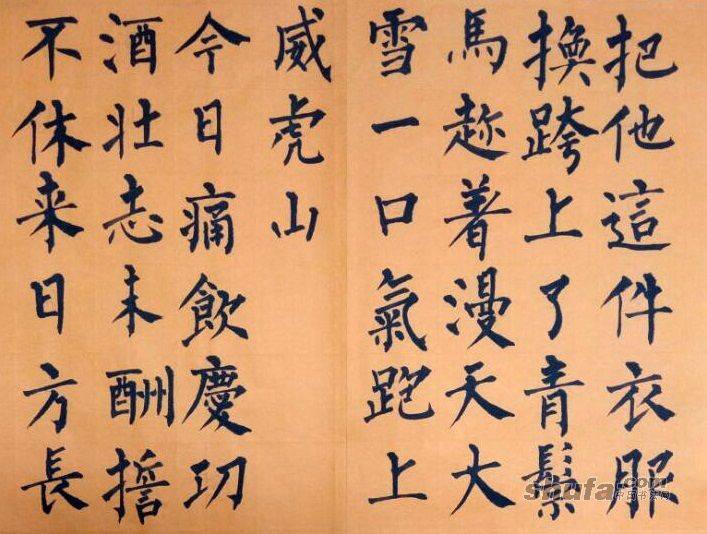 把他這件衣服
換跨上了青鬃
馬趂着漫天大
雪一口氣跑上
威虎山
今日痛飲慶功
酒壮志未酬誓
不休来日方長
shufa.com
中国书法网